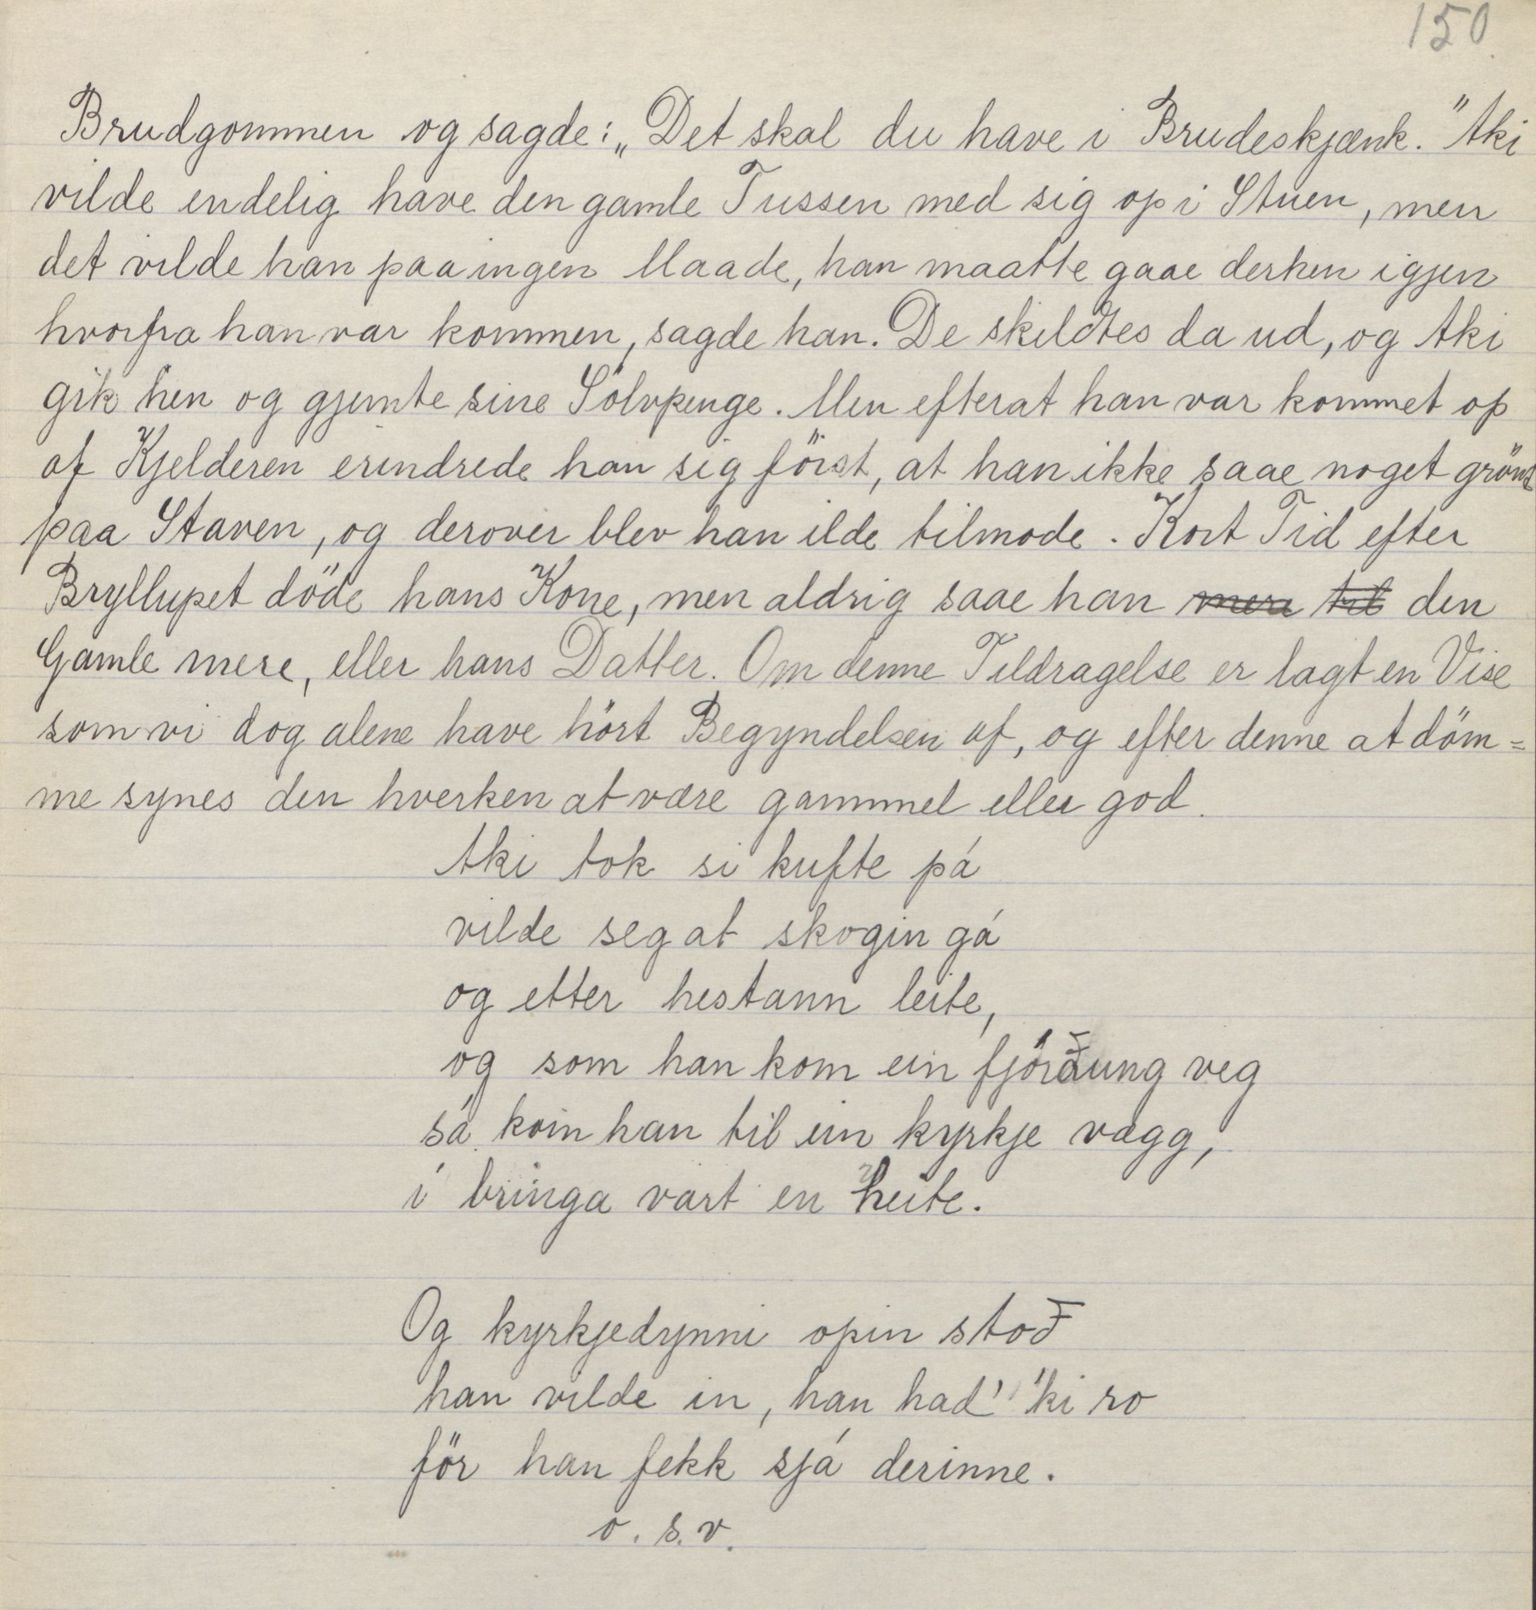 150
Brudgommen og sagde: „Det skal du have i Brudeskjænk.” Aki
vilde endelig have den gamle Tussen med sig op i Stuen, men
det vilde han paa ingen Maade, han maatte gaae derhen igjen
hvorfra han var kommen, sagde han. De skildtes da ud, og Aki
gik hen og gjemte sine Sölvpenge. Men efterat han var kommet op
af Kjelderen erindrede han sig först, at han ikke saae noget grönt
paa Staven, og derover blev han ilde tilmode. Kort Tid efter
Bryllupet döde hans Kone, men aldrig saae han mere til den
Gamle mere, eller hans Datter. Om denne Tildragelse er lagt en Vise
som vi dog alene have hört Begyndelsen af, og efter denne at döm=
me synes den hverken at være gammel eller god.
Aki tok si kufte pá
vilde seg at skogin gá
og etter hestann leite,
og som han kom ein fjórðung veg
sá kom han til ein kyrkje vægg,
i bringa vart en heite.
Og kyrkjedynni opin stoð
han vilde in, han had' 'ki ro
för han fekk sjá derinne.
o. s. v.